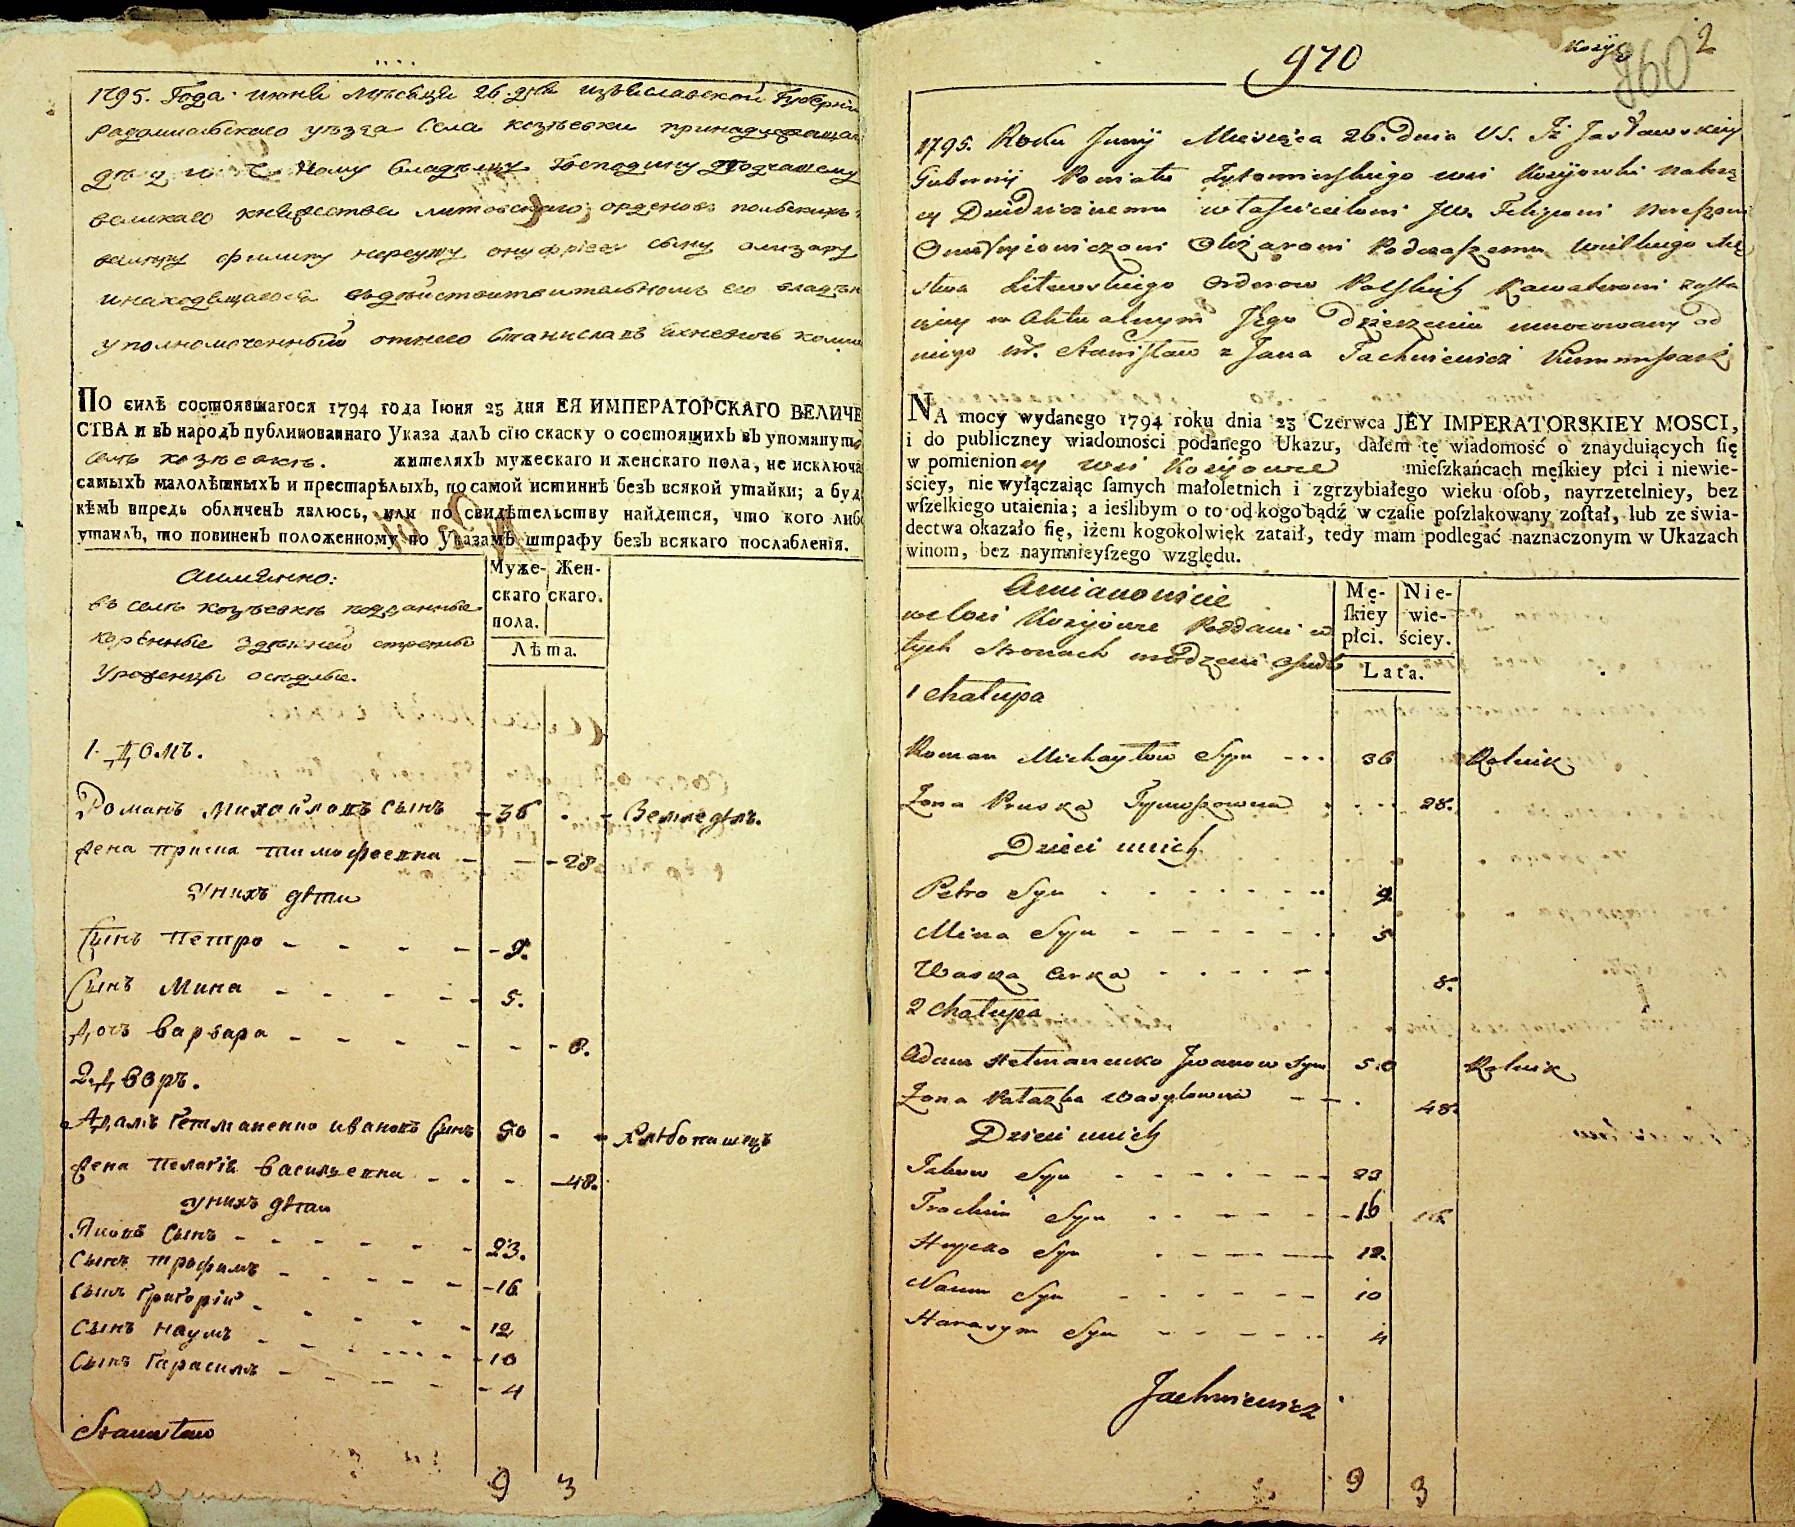 1795. Года июня месяца 26. дня изъяславской Губернии
радомысльского уезда Села козѣевки принадлежащаго
ному владелцу Господину подчашему
великаго княжества литовскаго, орденовъ польскихъ
филипу нерезу онуфрiеву сыну олизару
инаходящагося въдействительномъ его владѣнии
уполномоченный отнего Станиславъ
По силѣ состоявшагося 1794 года Iюня 23 дня ЕЯ ИМПЕРАТОРСКАГО ВЕЛИЧЕ
СТВА и въ народъ публикованнаго Указа далъ сiю скаску о состоящихъ въ упомянутом
селѣ козѣевкѣ. жителяхъ мужескаго и женскаго пола, не исключа
самыхъ малолѣтныхъ и престарѣлыхъ, по самой истиннѣ безъ всякой утайки; а буд
кѣмъ впредь обличенъ явлюсь, или по свидѣтельству найдется, что кого либо
утаилъ, то повиненъ положенному по Указамъ штрафу безъ всякаго послабленiя.
Аимянно:
въ селѣ козѣевкѣ подданные
корѣнные здѣшней стороны
Уроженцы оседлые.
Муже-
скаго
пола.
Жен-
скаго.
Лѣта.
1. Домъ.
Романъ Михайловъ сынъ - 36 - Земледѣлъ.
Жена приска тимофеевна - - - 28
Унихъ дѣти
Сынъ Петро - - - - - 9.
Сынъ Мина - - - - - 5.
Дочь варвара - - - - - - 8.
2. Дворъ.
Адамъ Гетманенко ивановъ Сынъ 50 - - хлѣбопашецъ
Жена Пелагiя васильевна - - - - 48.
Унихъ дѣти
Яковъ Сынъ - - - - - - 23.
Сынъ трофимъ - - - - - - 16
Сынъ Григорiй - - - - - 12
Сынъ наумъ - - - - - 10
Сынъ Гарасимъ - - - - - 4
Stanisław
9 3
970
2
860
1795. Roku Juny Miesiąca 26. Dnia V.S. Iż Jasławskiey
Gubernij Powiatu Żytomierskiego wsi Kozijowki należą
cy Dziedzicznemu właścicielowi JW. Filipowi Nereszowi
Onufryiowiczowi Olizarowi Podczaszemu Wielkiego Xię
stwa Litewskiego Orderow Polskich Kawalerowi zosta
iący w Aktualnym Jego dzierżeniu umocowany od
niego W. Stanisław z Jana Jachniewicz Kommissarz
NA mocy wydanego 1794 roku dnia 23 Czerwca JEY IMPERATORSKIEY MOSCI,
i do publiczney wiadomości podanego Ukazu, dałem tę wiadomość o znayduiących ſię
w pomienioney wsi Kozijowce mieſzkańcach męſkiey płci i niewie-
ściey, nie wyłączaiąc ſamych małoletnich i zgrzybiałego wieku oſob, nayrzetelniey, bez
wſzelkiego utaienia; a ieślibym o to od kogo bądź w czaſie poſzlakowany zoſtał, lub ze świa-
dectwa okazało ſię, iżem kogokolwięk zataił, tedy mam podlegać naznaczonym w Ukazach
winom, bez naymnieyſzego względu.
Amianowicie
we Wsi Kozijowce Poddani w
tych Stronach urodzeni osiedli
Mę-
ſkiey
płci.
Nie-
wie-
ściey.
Lata.
1 chałupa
Roman Michayłow Syn - - - 36 Rolnik
Żona Pruska Tymoszowna - - - 28.
Dzieci unich
Petro Syn - - - - - - 9.
Mina Syn - - - - - - 5
Waska Corka - - - - - 8.
2 chałupa
Adam Hetmanenko Iwanow Syn 50 Rolnik
Żona Pałażka Wasylowna - - - 48.
Dzieci unich
Jakow Syn - - - - - - 23
Trochim Syn - - - - - 16
Hrycko Syn - - - - 12.
Naum Syn - - - - - - 10
Harasym Syn - - - - - 4
Jachniewicz
9 3